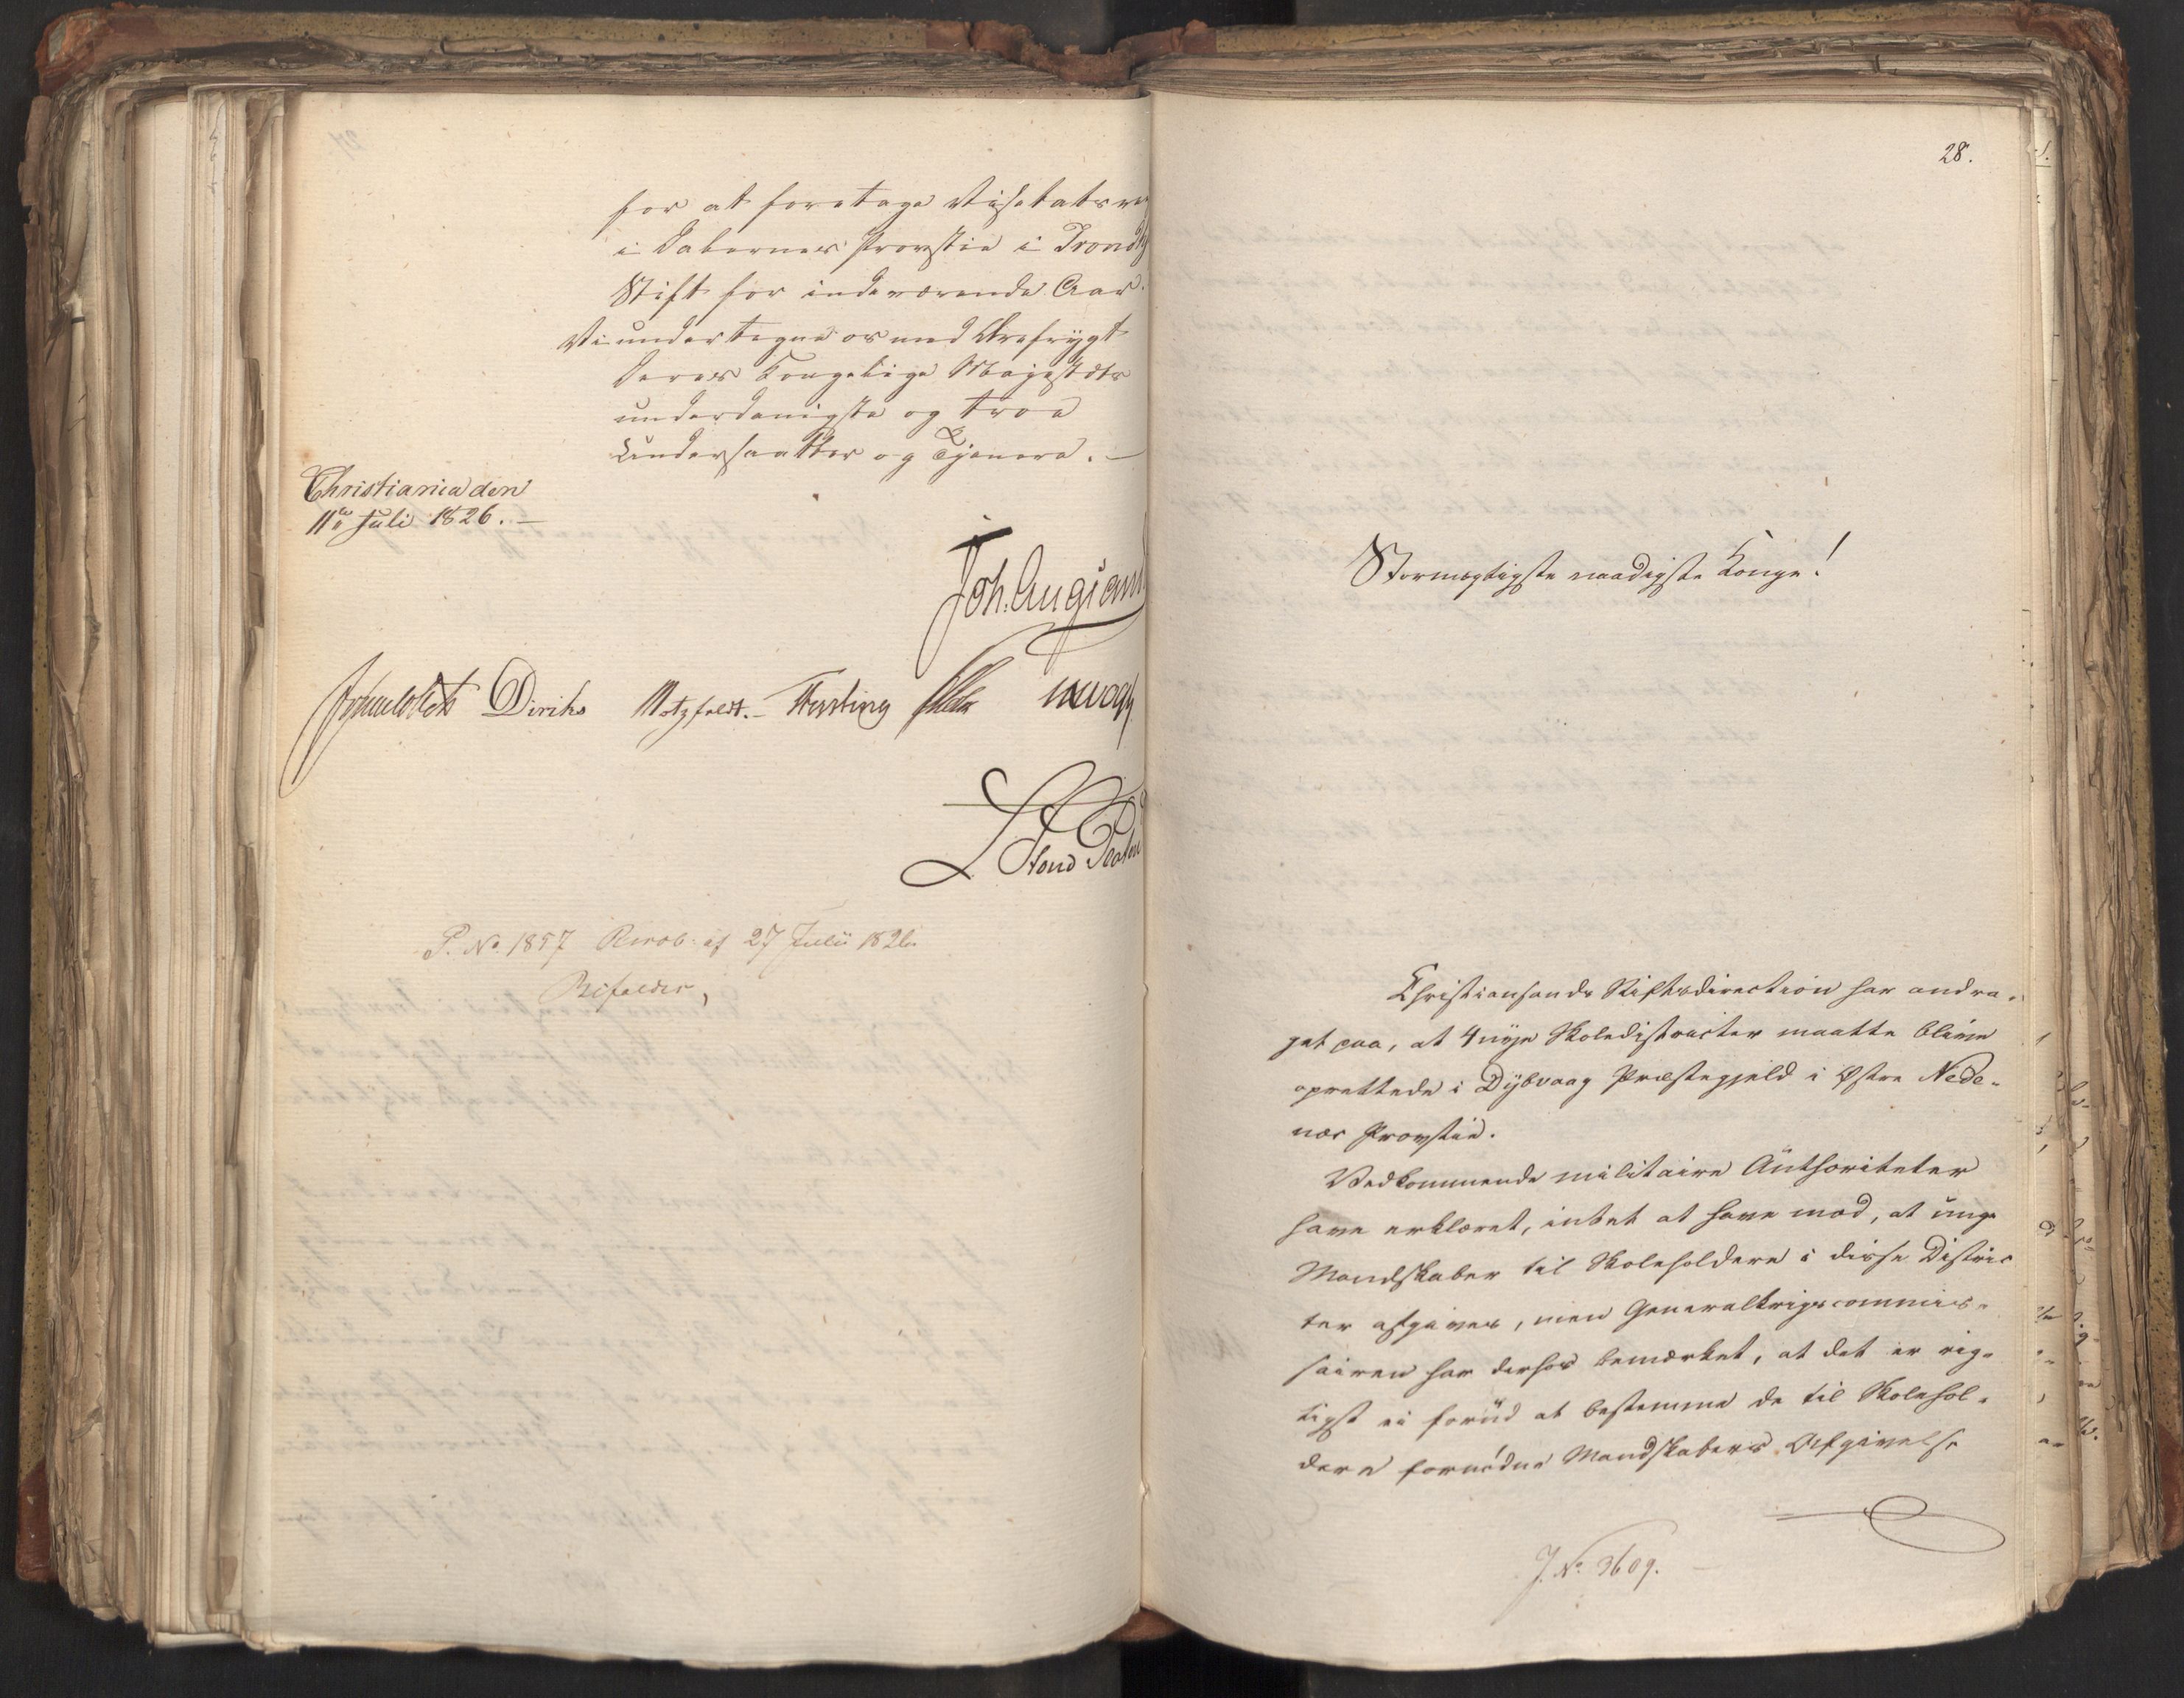 for at foretage Visitatser
i Dalernes Provstie i Trondhj
Stift for indeværende Aar.
Vi undertegne os med Ærefrygt
Deres Kongelige Majestæts
underdanigste og troe
Undersaatter og Tjenere. —
Christiania den
11te Juli 1826. —
Joh. Aug:
Diriks Motzfeldt. — Fasting
P. No. 1857 Resol: af 27 Julii 1826
Bifaldes,
28.
Stormægtigste naadigste Konge!
Christiansands Stiftsdirection har andra-
get paa, at 4 nye Skoledistricter maatte blive
oprettede i Dybvaag Præstegjeld i Østre Nede-
næs Provstie.
Vedkommende militaire Authoriteter
have erklæret, intet at have mod, at unge
Mandskaber til Skoleholdere i disse Distric
ter afgives, men Generalkrigscommis-
sairen har derhos bemærket, at det er rig-
tigst ei forud at bestemme de til Skolehol-
dere fornødne Mandskabers Afgivelse
J. No. 3609.